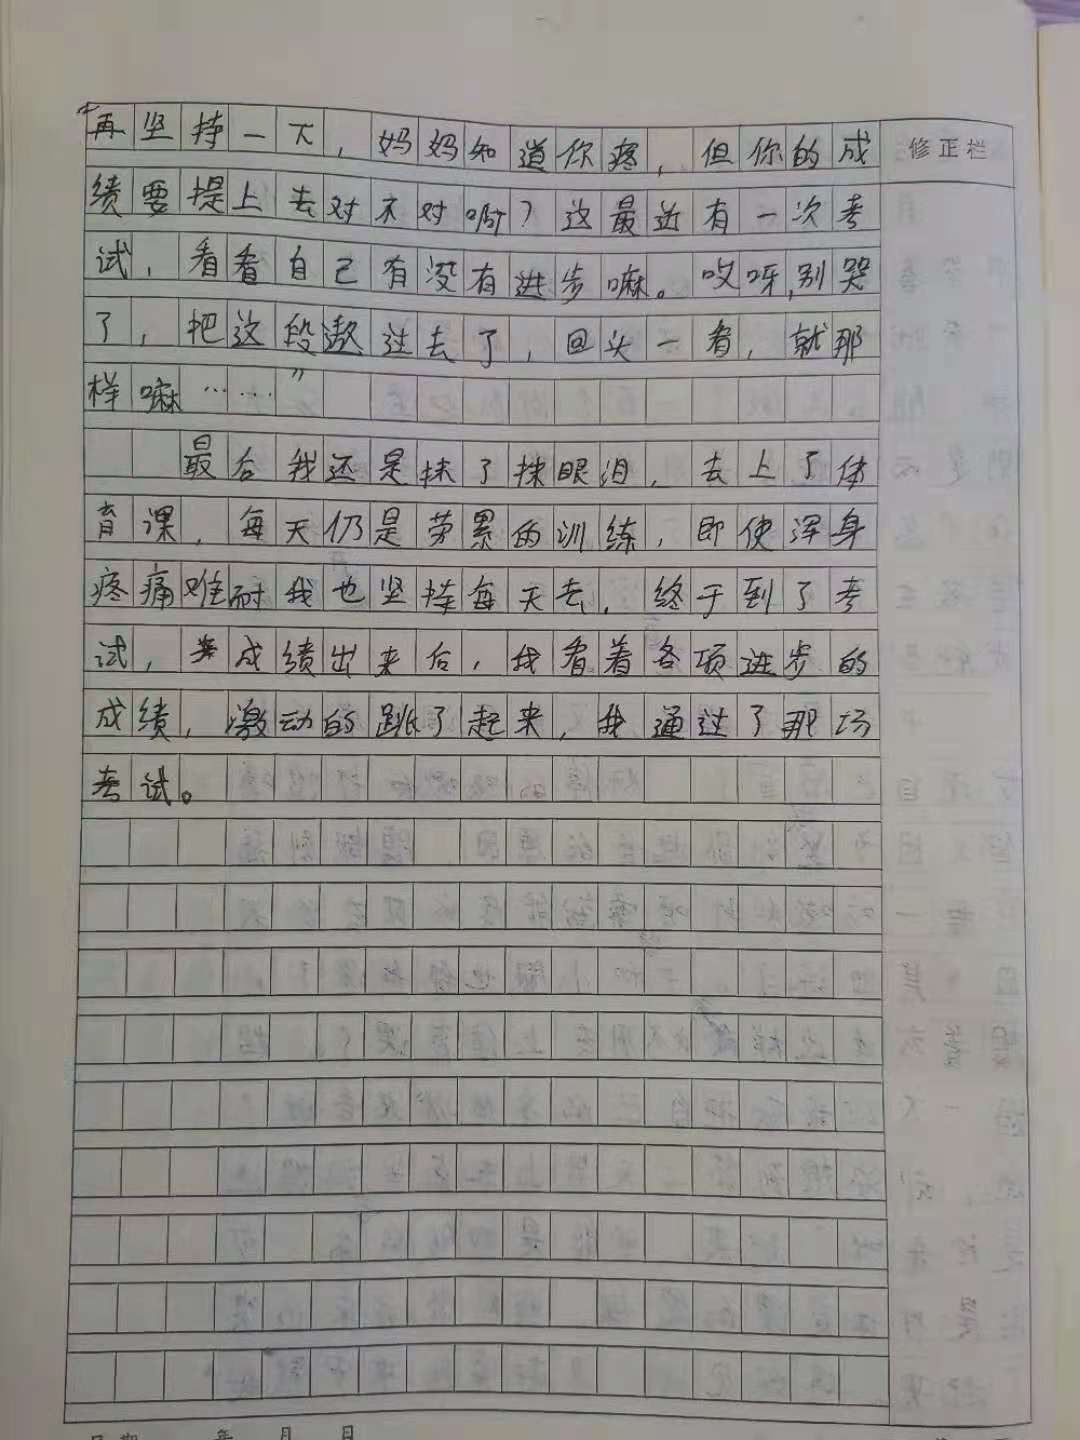 “再坚持一下，妈妈知道你疼，但你的成
修正栏
绩要提上去对不对啊？这最近有一次考
试，看看自己有没有进步嘛。哎呀，别哭
了，把这段遨过去了，回头一看，就那
样嘛……”
最后我还是抹了抹眼泪，去上了体
育课，每天仍是劳累的训练，即使浑身
疼痛难耐我也坚持每天去，终于到了考
试，成绩出来后，我看着各项进步的
成绩，激动的跳了起来，我通过了那场
考试。
年 月 日